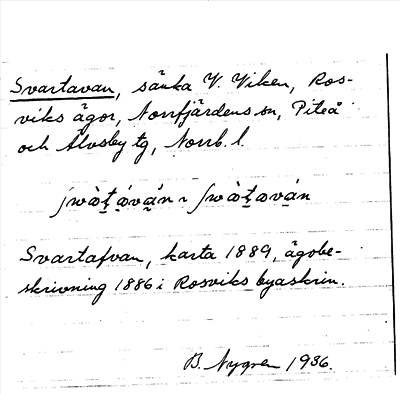 Svartavan, sänka V. Viken, Ros-
viks ägor, Norrfjärdens sn, Piteå
och Älvsby tg, Norrb. l.
Svartafvan, karta 1889, ägobe-
skrivning 1886 i Rosviks byaskrin.
B. Nygren 1936.